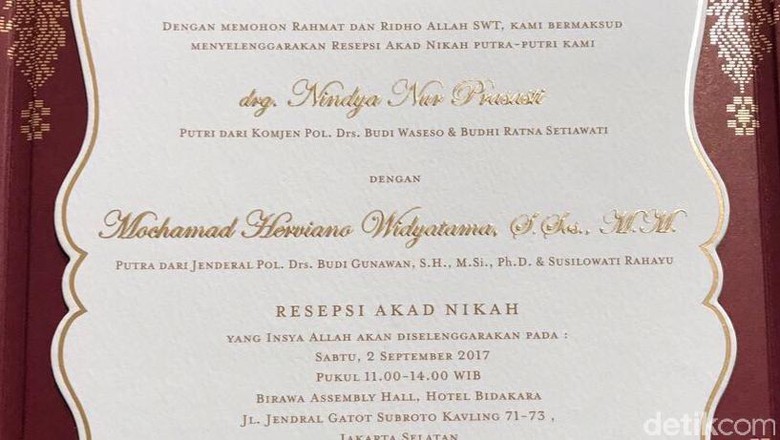 Dengan memohon Rahmat dan Ridho Allah SWT, kami bermaksud
menyelenggarakan Resepsi Akad Nikah putra-putri kami
drg. Nindya Nur Prasasti
Putri dari Komjen Pol. Drs. Budi Waseso & Budhi Ratna Setiawati
dengan
Mochamad Herviano Widyatama, S.Sos., M.M.
Putra dari Jenderal Pol. Drs. Budi Gunawan, S.H., M.Si., Ph.D. & Susilowati Rahayu
RESEPSI AKAD NIKAH
yang Insya Allah akan diselenggarakan pada :
Sabtu, 2 September 2017
Pukul 11.00-14.00 WIB
Birawa Assembly Hall, Hotel Bidakara
Jl. Jendral Gatot Subroto Kavling 71-73 ,
Jakarta Selatan
detikcom